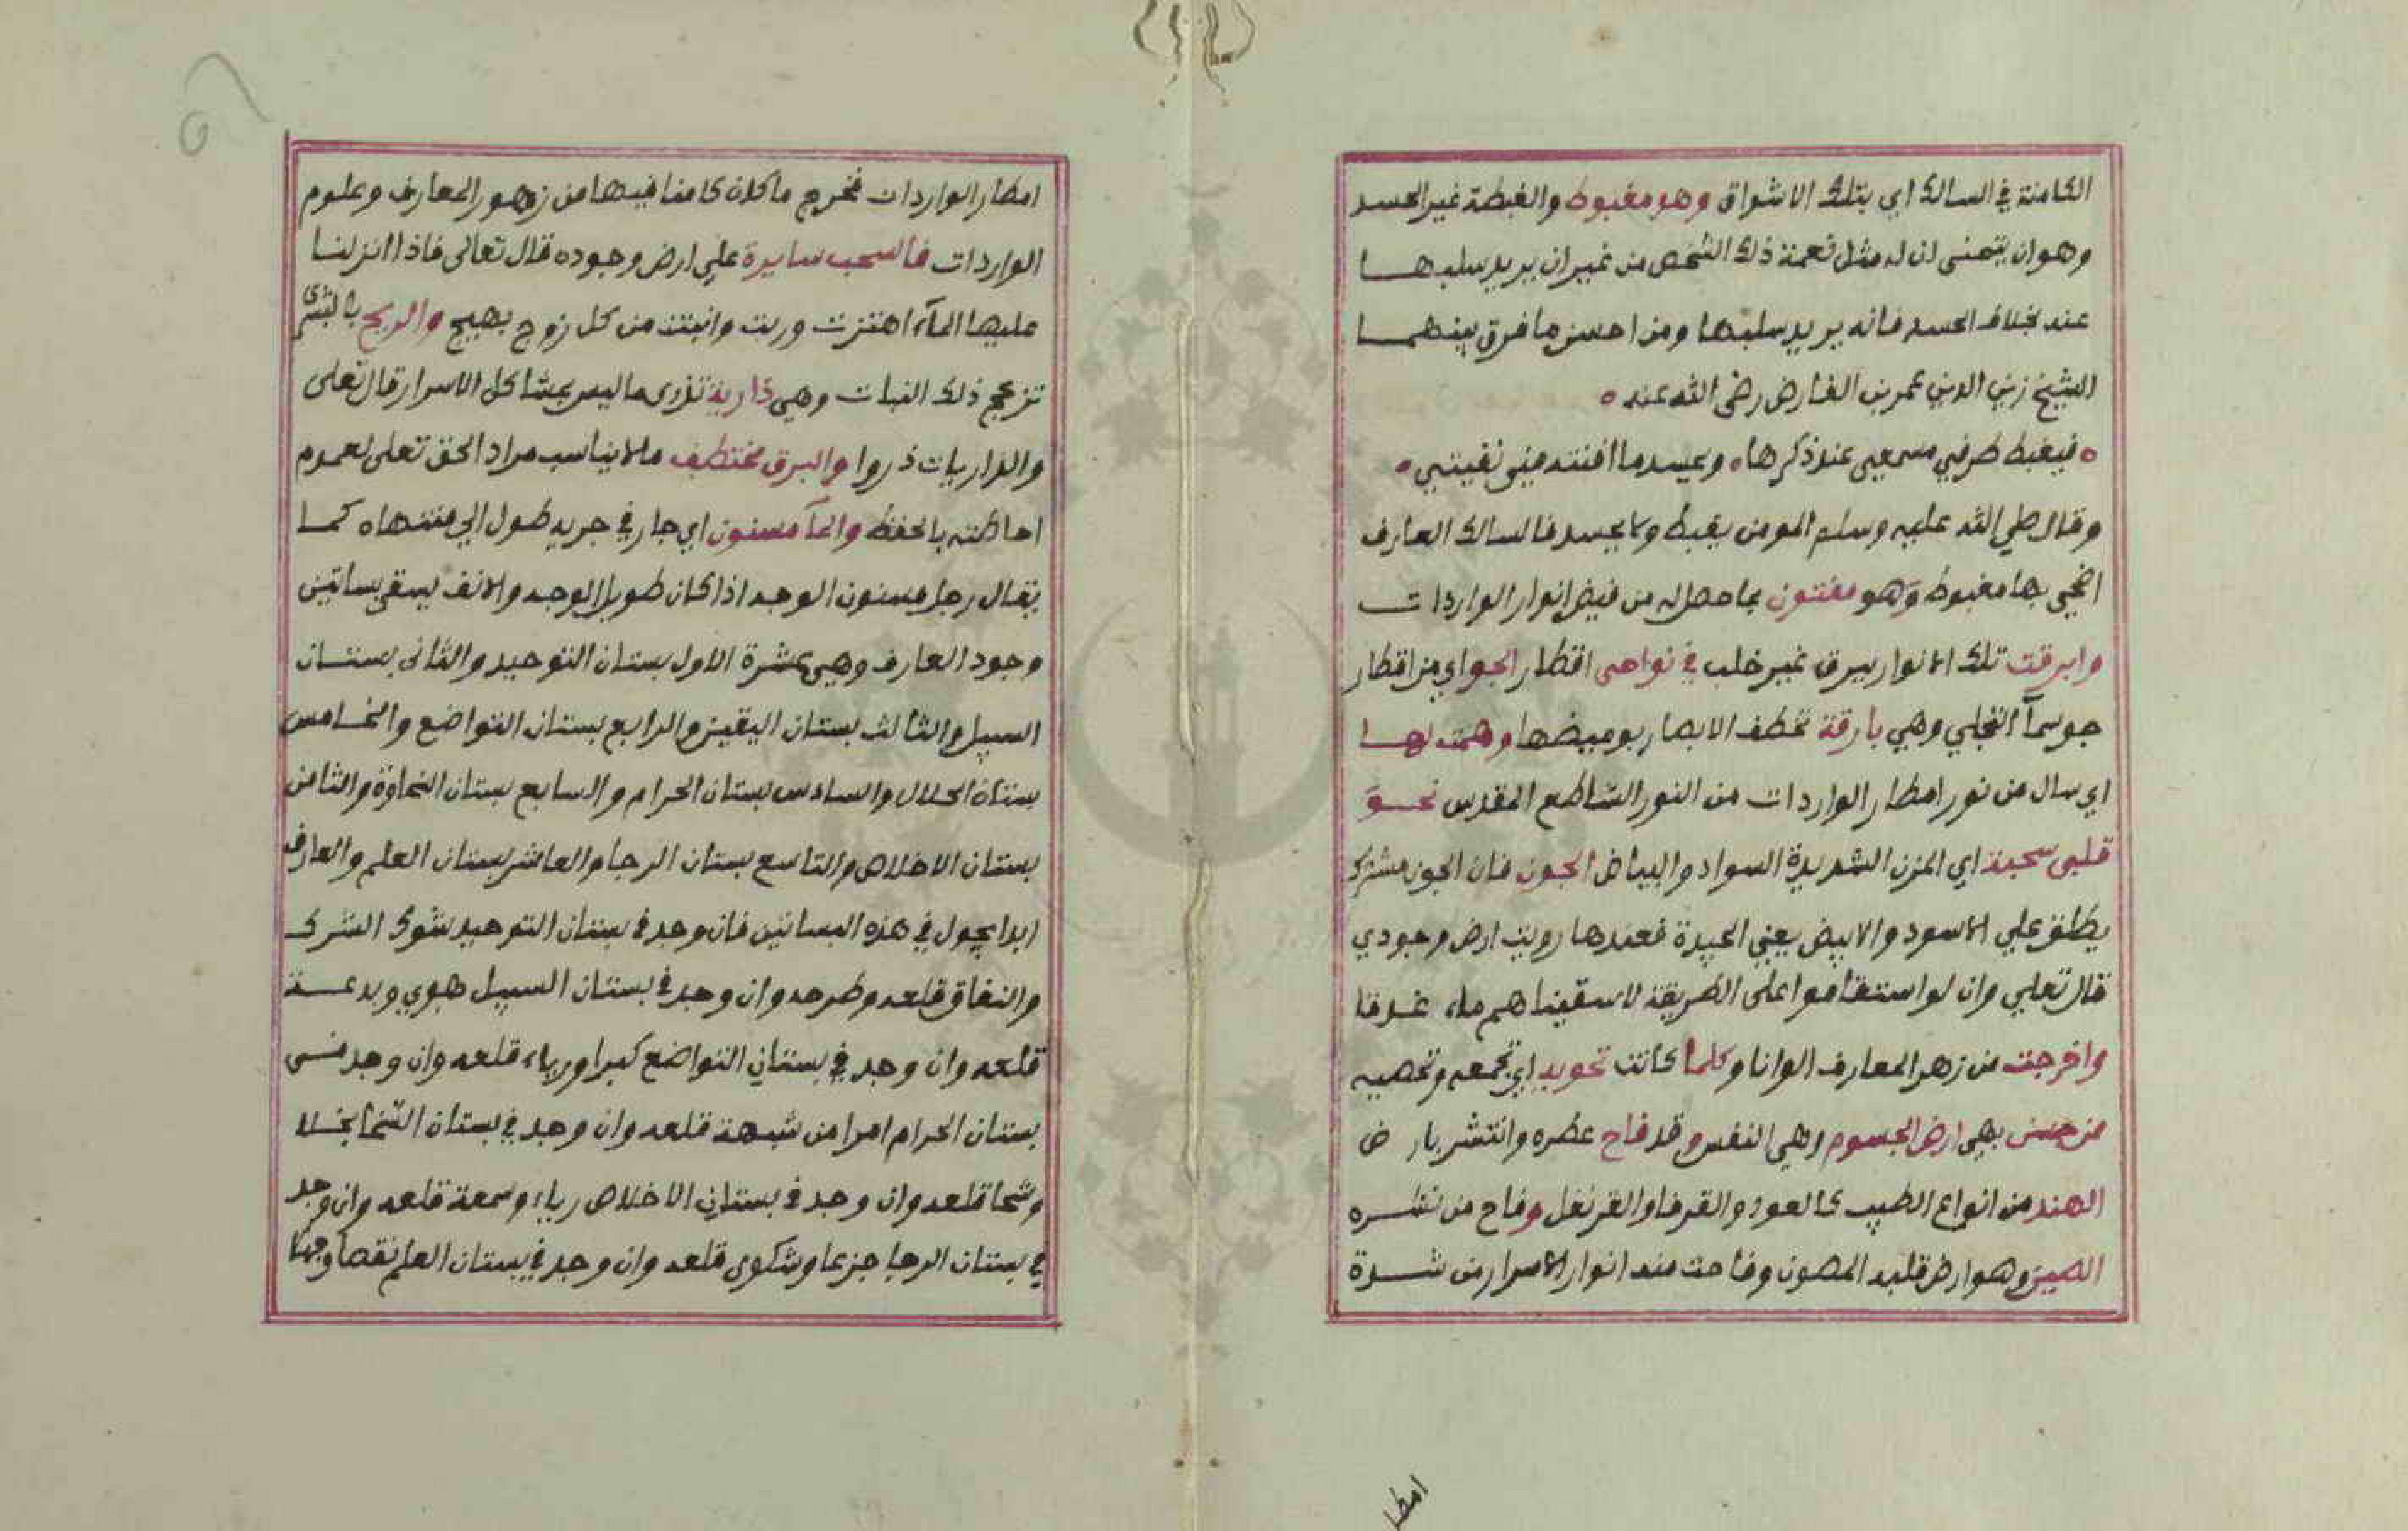 الكامنة في السالك اي بتلك الاشواق وهو مغبوط والغبطة غير الحسد
وهو ان يتمنى ان له مثل نعمة ذلك الشخص من غير ان يريد سلبها
عنه بخلاف الحسد فانه يريد سلبها ومن احسن ما فرق بينهما
الشيخ زين الدين عمر بن الفارض رضي الله عنه ه
ه فيغبط طرفي مسمعي عند ذكرها ه ويحسد ما افنته مني بقيتي ه
وقال صلي الله عليه وسلم المومن يغبط ولا يحسد فالسالك العارف
اضحي بها مغبوط وهو مفتون بما حصل له من فيض انوار الواردات
وابرقت تلك الانوار ببرق غير خلب في نواحي اقطار الجو اي من اقطار
جو سمآ التجلي وهي بارقة تخطف الابصار بوميضها وهمت لها
اي سال من نور امطار الواردات من النور الساطع المقدس نحو
قلبي سحبه اي المزن الشديدة السواد والبياض الجون فان الجون مشترك
يطلق علي الاسود والابيض يعني الجيدة فعندها رويت ارض وجودي
قال تعلي وان لو استقاموا على الطريقة لاسقيناهم ماء غدقا
واخرجت من زهر المعارف الوانا وكلما كانت تحويه اي تجمعه وتحصيه
من حسن بهي ارض الجسوم وهي النفس وقد فاح عطره وانتشر بارض
الهند من انواع الطيب كالعود والقرفا والقرنفل وفاح من نشره
الصين وهو ارض قلبه المصون وفاحت منه انوار الاسرار من شدة
امطا
امطار الواردات فخرج ما كان كامنا فيها من زهور المعارف وعلوم
الواردات فالسحب سايرة علي ارض وجوده قال تعالى فاذا انزلنا
عليها المآء اهتزت وربت وانبتت من كل زوج بهيج والريح بالبشرى
تزعج ذلك النبات وهي ذارية تذرى ما ليس يشاكل الاسرار قال تعلى
والذاريات ذروا والبرق مختطف ما لا يناسب مراد الحق تعلى لعموم
احاطته بالحفظ والمآ مسنون اي جار في جريه طول الي منتهاه كما
يقال رجل مسنون الوجه اذا كان طويل الوجه والانف يسقي بساتين
وجود العارف وهي عشرة الاول بستان التوحيد والثاني بستان
السبيل والثالث بستان اليقين والرابع بستان التواضع والخامس
بستان الحلال والسادس بستان الحرام والسابع بستان السخاوة والثامن
بستان الاخلاص والتاسع بستان الرجا والعاشر بستان العلم والعارف
ابدا يجول في هذه البساتين فان وجد في بستان التوحيد شوك الشرك
والنفاق قلعه وطرحه وان وجد في بستان السبيل هوي وبدعة
قلعه وان وجد في بستان التواضع كبرا ورياء قلعه وان وجد في
بستان الحرام امرا من شبهة قلعه وان وجد في بستان السخا بخلا
وشحا قلعه وان وجد في بستان الاخلاص رياء وسمعة قلعه وان وجد
في بستان الرجا جزعا وشكوى قلعه وان وجد في بستان العلم نقصا وجهلا